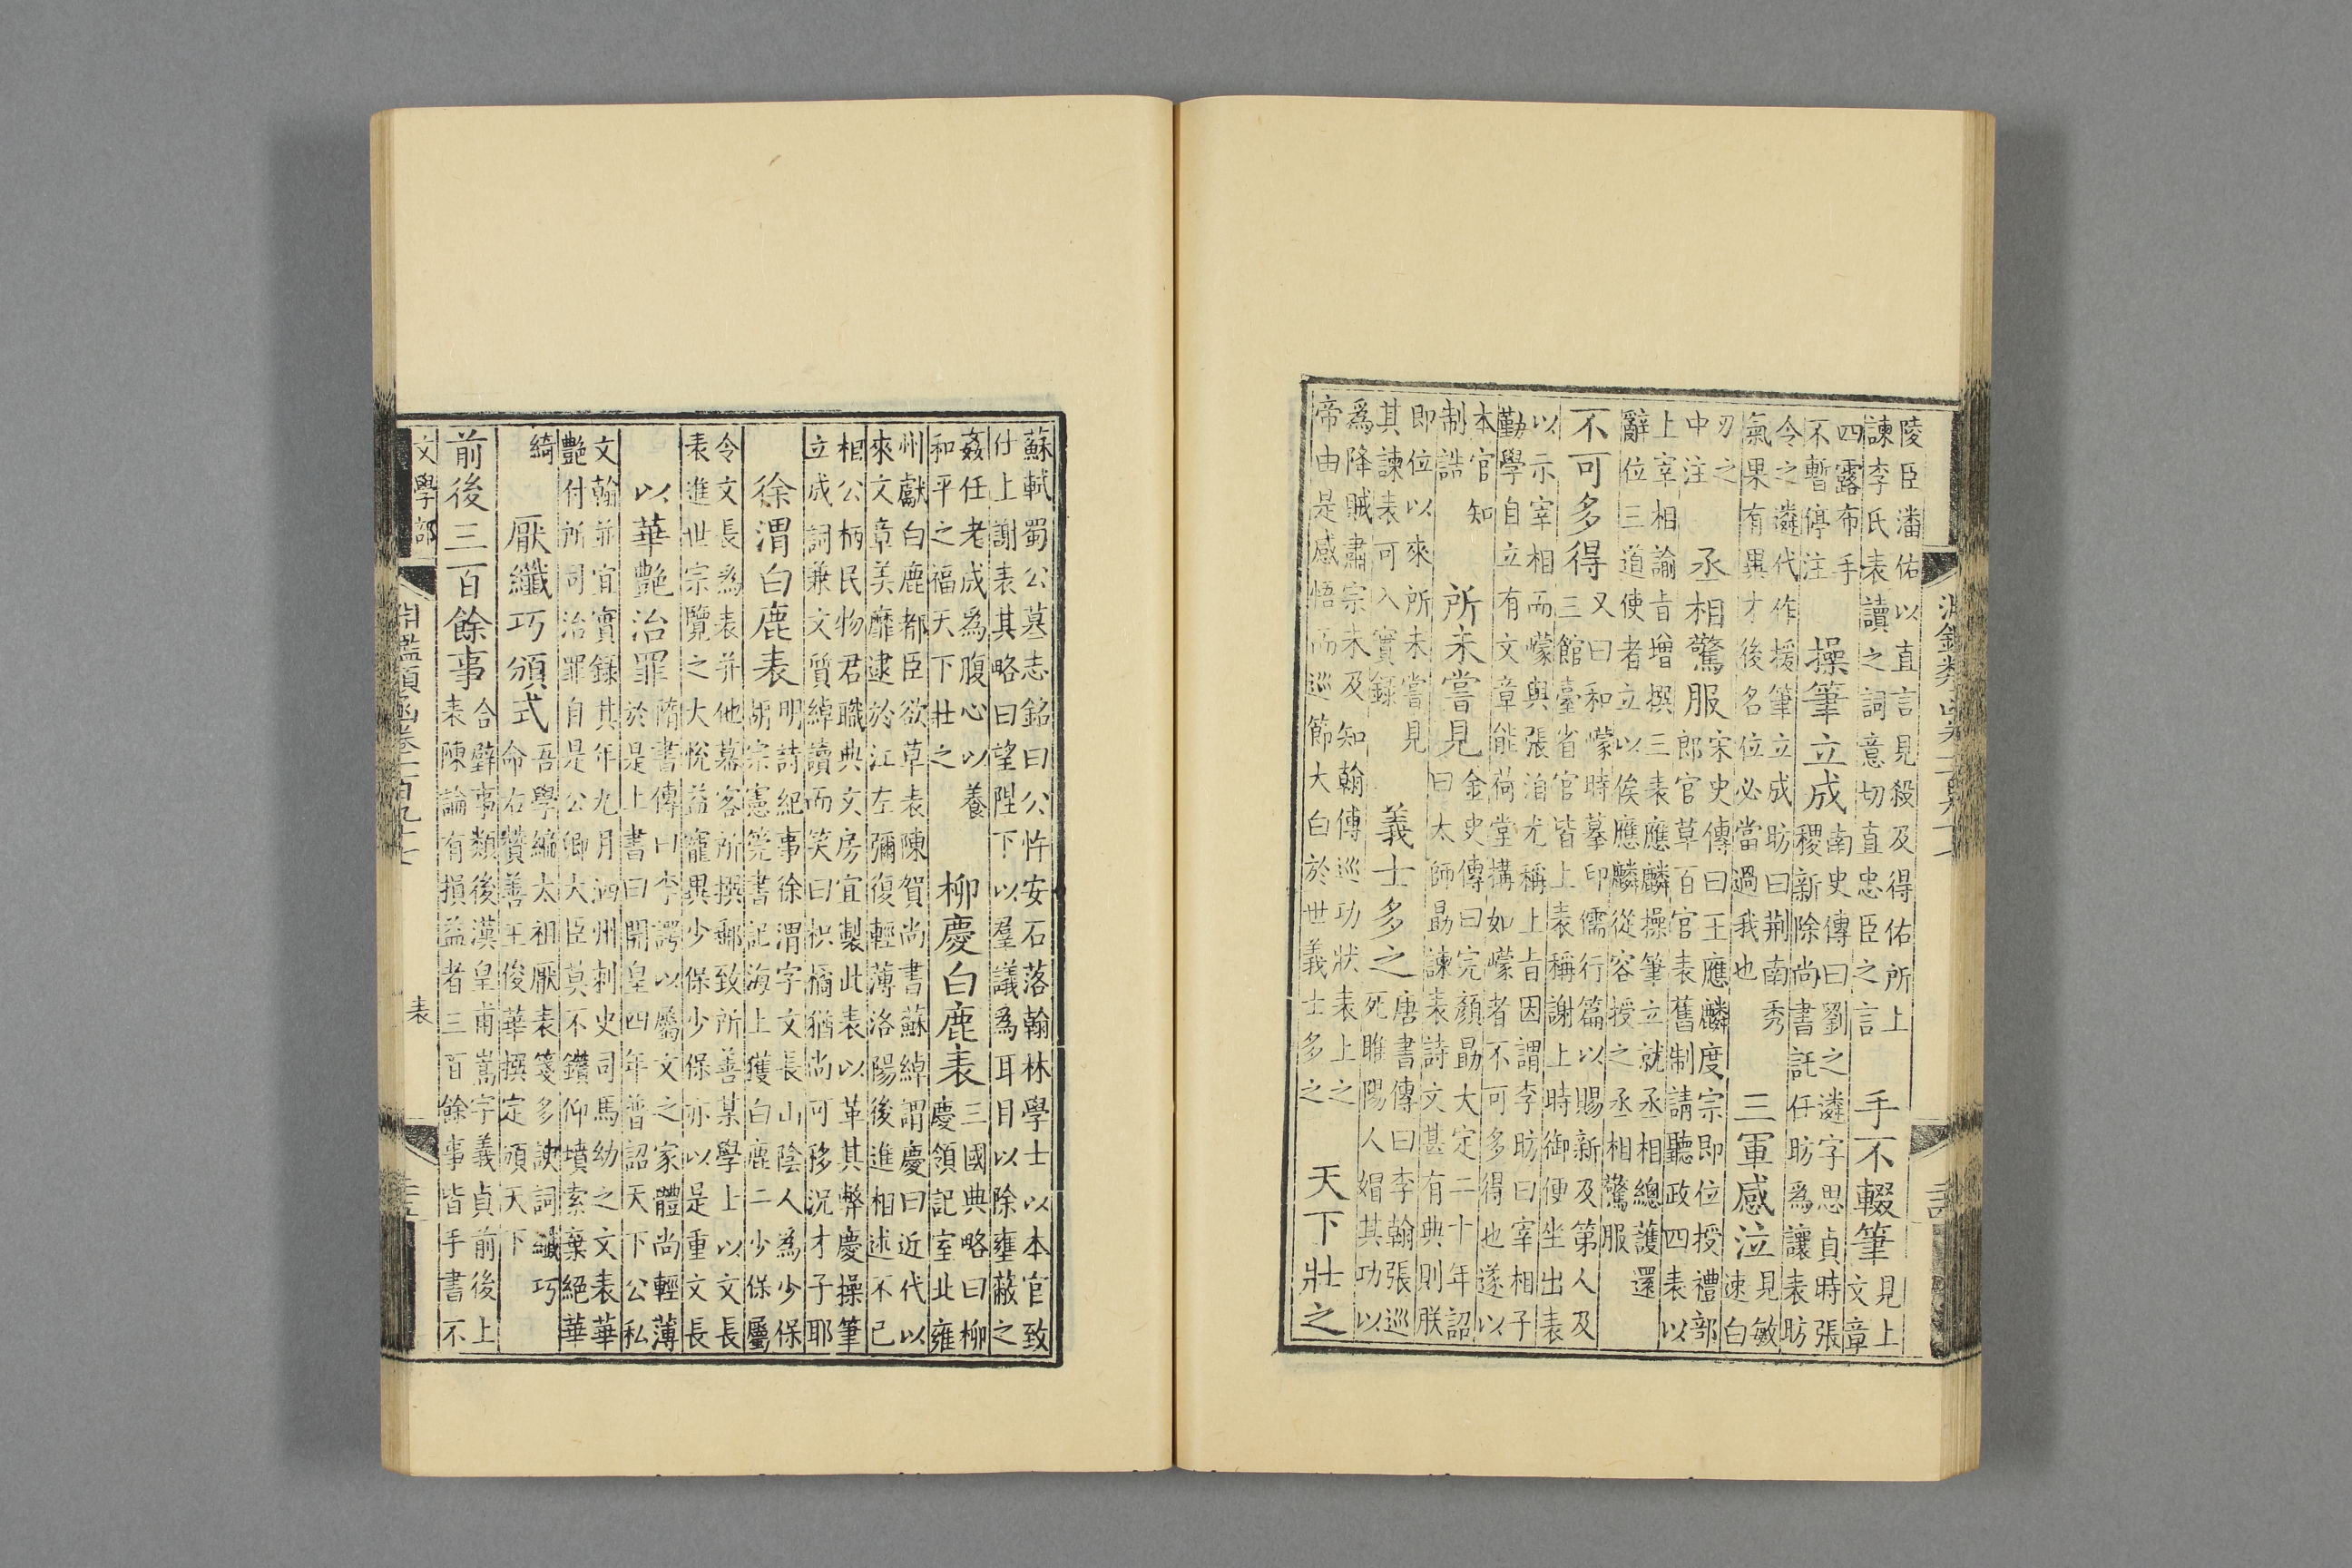 陵臣潘佑以直言見殺及得佑所上
諫李氏表讀之詞意切直忠臣之言
手不輟筆
見上
文章
四露布手
不暫停注
操筆立成
南史傳曰劉之遴字思貞時張
稷新除尚書託任昉為讓表昉
令之遴代作援筆立成昉曰荆南秀
氣果有異才後名位必當過我也
三軍感泣
見敏
速白
刃之
中注
丞相驚服
宋史傳曰王應麟度宗即位授禮部
郎官草百官表舊制請聽政四表以
上宰相諭旨增撰三表應麟操筆立就丞相總護還
辭位三道使者立以俟應麟從容授之丞相驚服
不可多得
又曰和㠓時摹印儒行篇以賜新及第人及
三館臺省官皆上表稱謝上時御便坐出表
以示宰相而㠓與張洎尤稱上旨因謂李昉曰宰相子
勤學自立有文章能荷堂構如㠓者不可多得也遂以
本官知
制誥
所未嘗見
金史傳曰完顏勗大定二十年詔
曰太師勗諫表詩文甚有典則朕
即位以來所未嘗見
其諫表可入實錄
義士多之
唐書傳曰李翰張巡
死睢陽人媢其功以
爲降賊肅宗未及知翰傳巡功狀表上之
帝由是感悟而巡節大白於世義士多之
天下壯之
蘇軾蜀公墓志銘曰公忤安石落翰林學士以本官致
仕上謝表其略曰望陛下以羣議爲耳目以除壅蔽之
姦任老成爲腹心以養
和平之福天下壯之
柳慶白鹿表
三國典略曰柳
慶領記室北雍
州獻白鹿都臣欲草表陳賀尚書蘇綽謂慶曰近代以
來文章美靡逮於江左彌復輕薄洛陽後進相述不已
相公柄民物君職典文房宜製此表以革其弊慶操筆
立成詞兼文質綽讀而笑曰枳橘猶尚可移況才子耶
徐渭白鹿表
明詩紀事徐渭字文長山陰人為少保
胡宗憲筦書記海上獲白鹿二少保屬
令文長為表并他幕客所撰郵致所善某學上以文長
表進世宗覽之大悅益寵異少保少保亦以是重文長
以華艷治罪
隋書傳曰李諤以屬文之家體尚輕薄
於是上書曰開皇四年普詔天下公私
文翰並宜實錄其年九月泗州刺史司馬幼之文表華
艷付所司治罪自是公卿大臣莫不鑽仰墳索棄絕華
綺
厭纖巧頒式
吾學編太祖厭表箋多諛詞纖巧
命右贊善王俊華撰定頒天下
前後三百餘事
合璧事類後漢皇甫嵩字義貞前後上
表陳論有損益者三百餘事皆手書不
文學部
淵鑑類函卷一百九十七
表